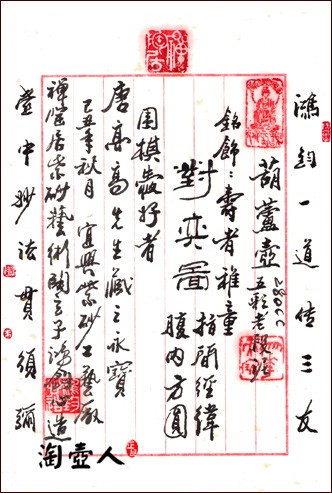 鴻鈞一道传三友
葫蘆壺 五彩老段泥 280CC
銘飾：壽者稚童 指間經緯
對弈圖 腹内方圓
圍棋愛好者
唐高高先生藏之永寶
己丑年秋月 宜興紫砂工藝厰
紫砂藝術陶玄子 造
壺中妙法貫須彌
淘壺人